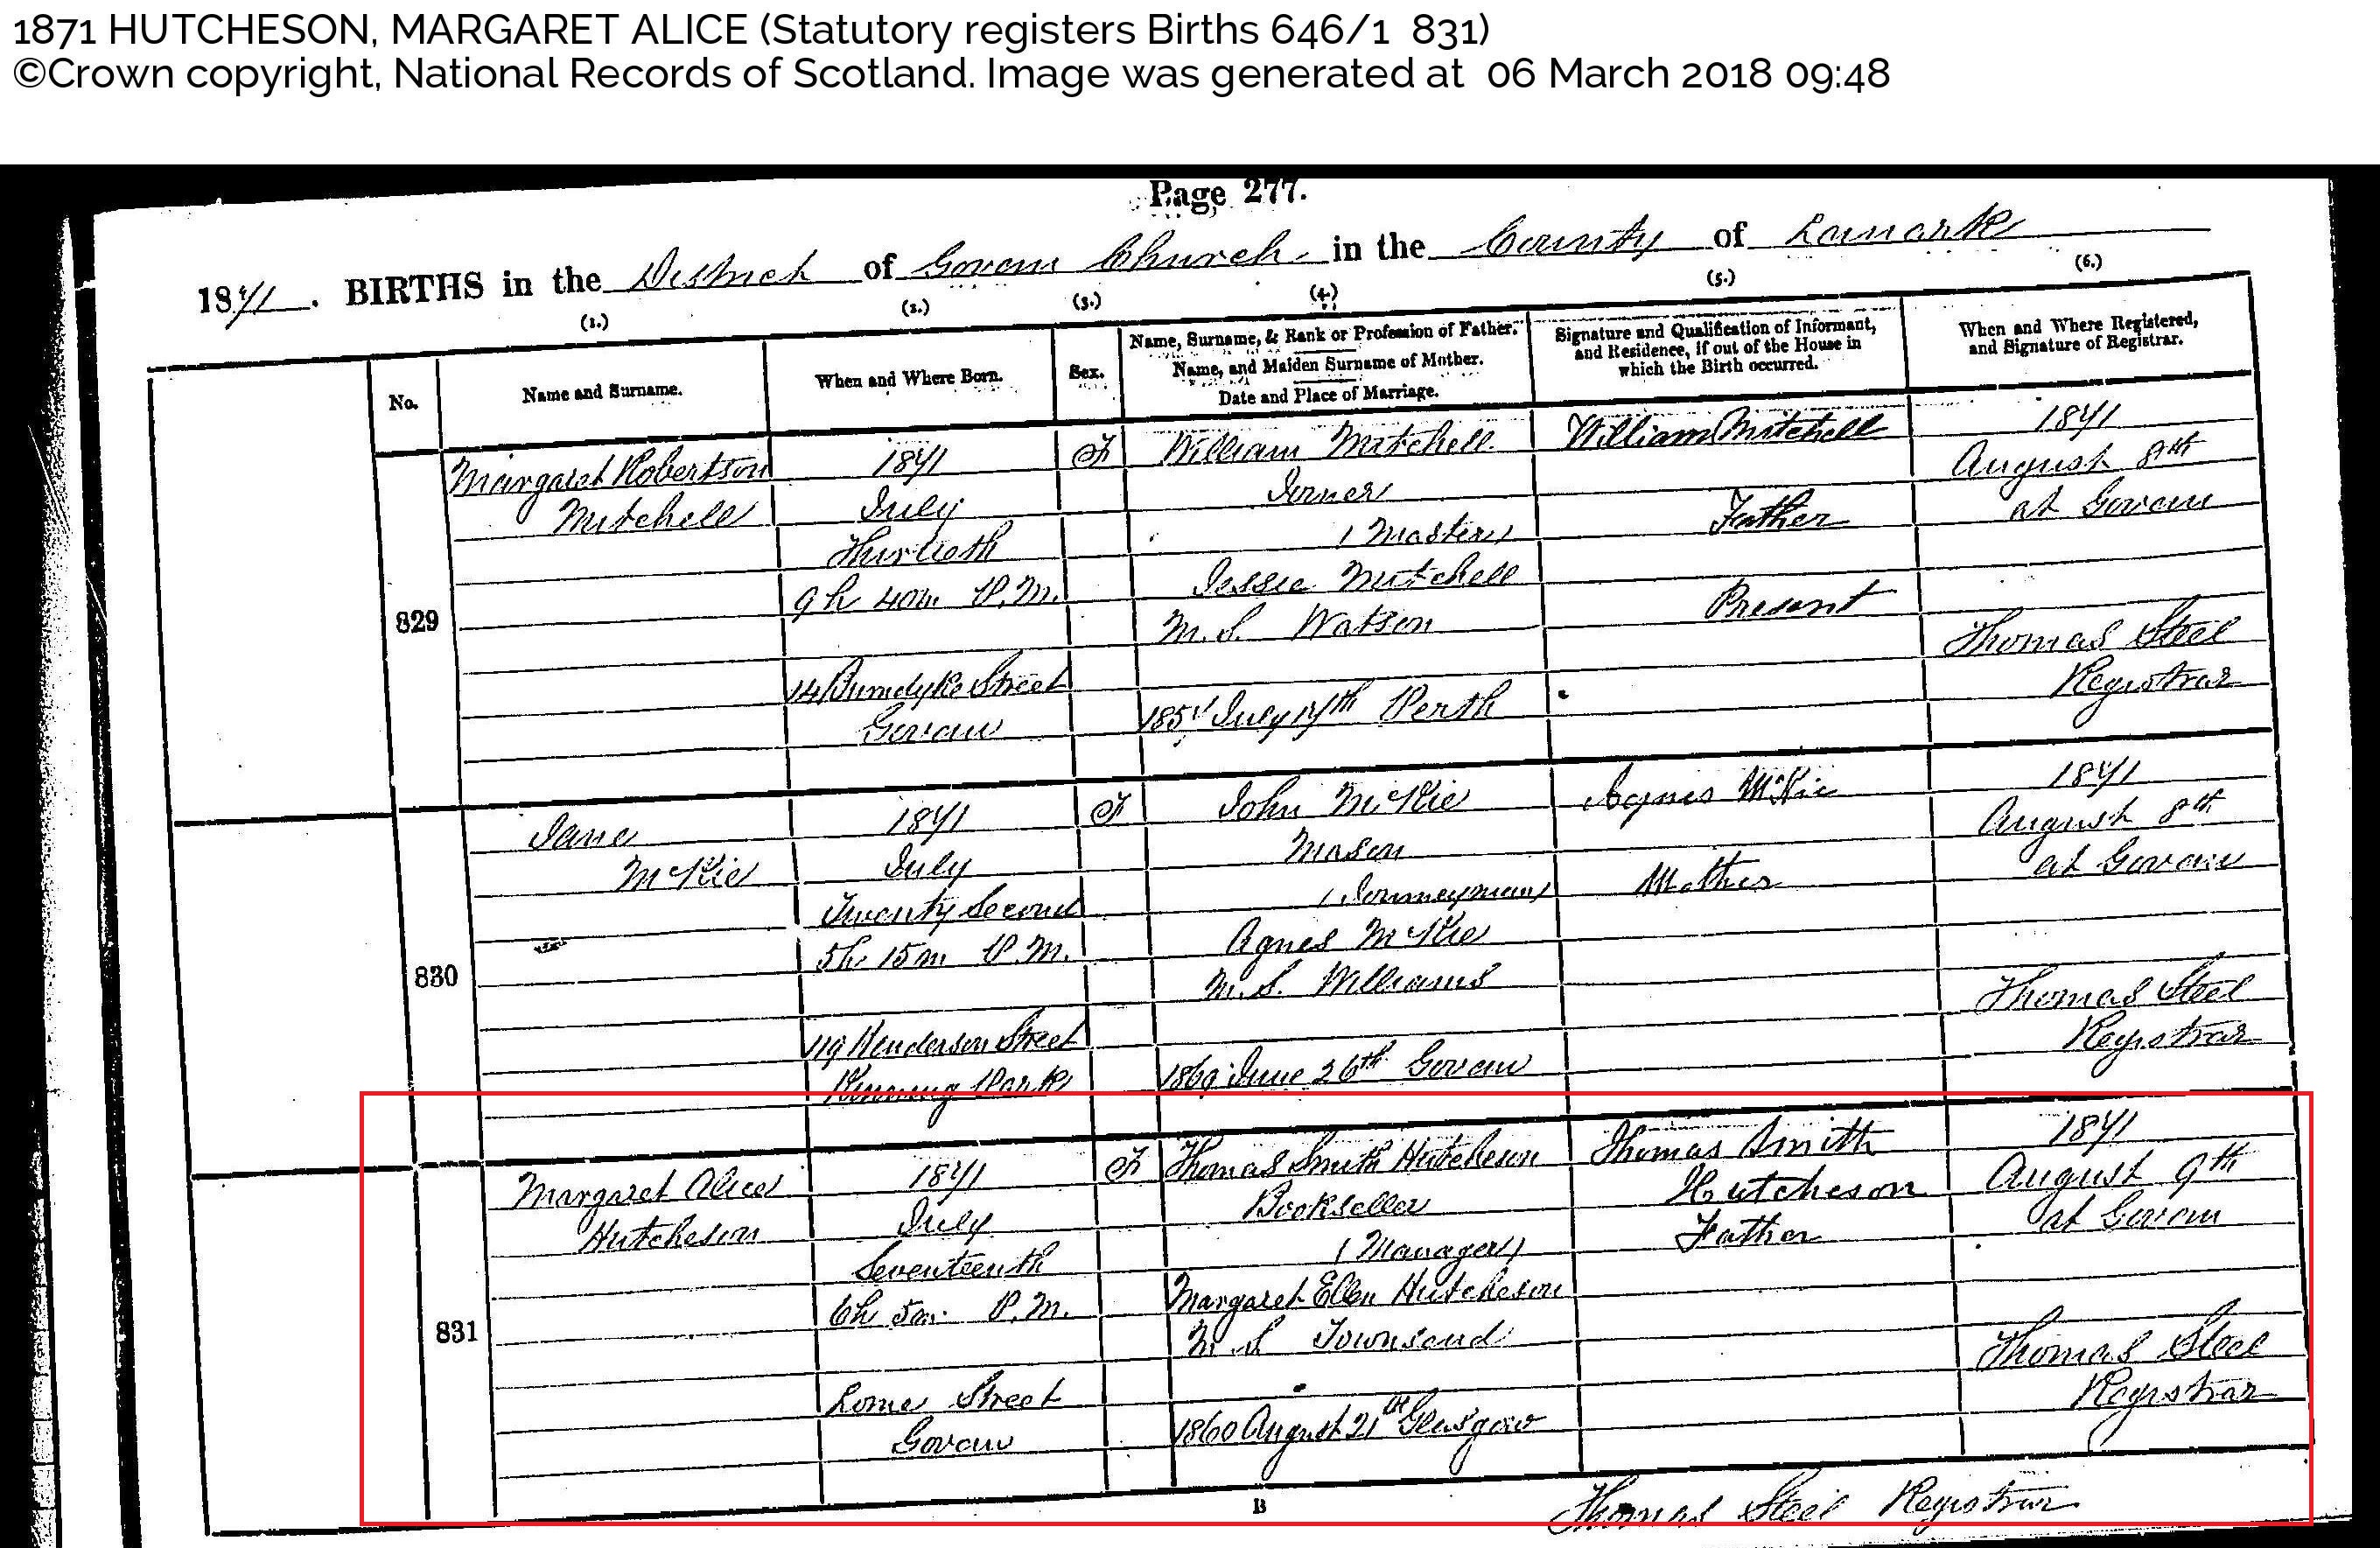 1871 HUTCHESON, MARGARET ALICE (Statutory registers Births 646/1 831)
©Crown copyright, National Records of Scotland. Image was generated at 06 March 2018 09:48
Page 277.
1871. BIRTHS in the District of Govan Church in the County of Lanark
(1.) (2.) (3.) (4.) (5.) (6.)
No.
Name and Surname.
When and Where Born.
Sex.
Name, Surname, & Rank or Profession of Father.
Name, and Maiden Surname of Mother.
Date and Place of Marriage.
Signature and Qualification of Informant,
and Residence, if out of the House in
which the Birth occurred.
When and Where Registered,
and Signature of Registrar.
829
Margaret Robertson
Mitchell
1871
July
Thirtieth
9h 40m P.M.
14 Burndyke Street
Govan
F
William Mitchell
Joiner
(Master)
Jessie Mitchell
M.S. Watson
1857 July 17th Perth
William Mitchell
Father
Present
1871
August 8th
at Govan
Thomas Steel
Registrar
830
Jane
McKie
1871
July
Twenty Second
5h 15m P.M.
119 Henderson Street
Kinning Park
F
John McKie
Mason
(Journeyman)
Agnes McKie
M.S. Williams
1869 June 26th Govan
Agnes McKie
Mother
1871
August 8th
at Govan
Thomas Steel
Registrar
831
Margaret Alice
Hutcheson
1871
July
Seventeenth
6h 5m P.M.
Lorne Street
Govan
F
Thomas Smith Hutcheson
Bookseller
(Manager)
Margaret Ellen Hutcheson
M S Townsend
1860 August 21st Glasgow
Thomas Smith
Hutcheson
Father
1871
August 9th
at Govan
Thomas Steel
Registrar
B
Thomas Steel Registrar